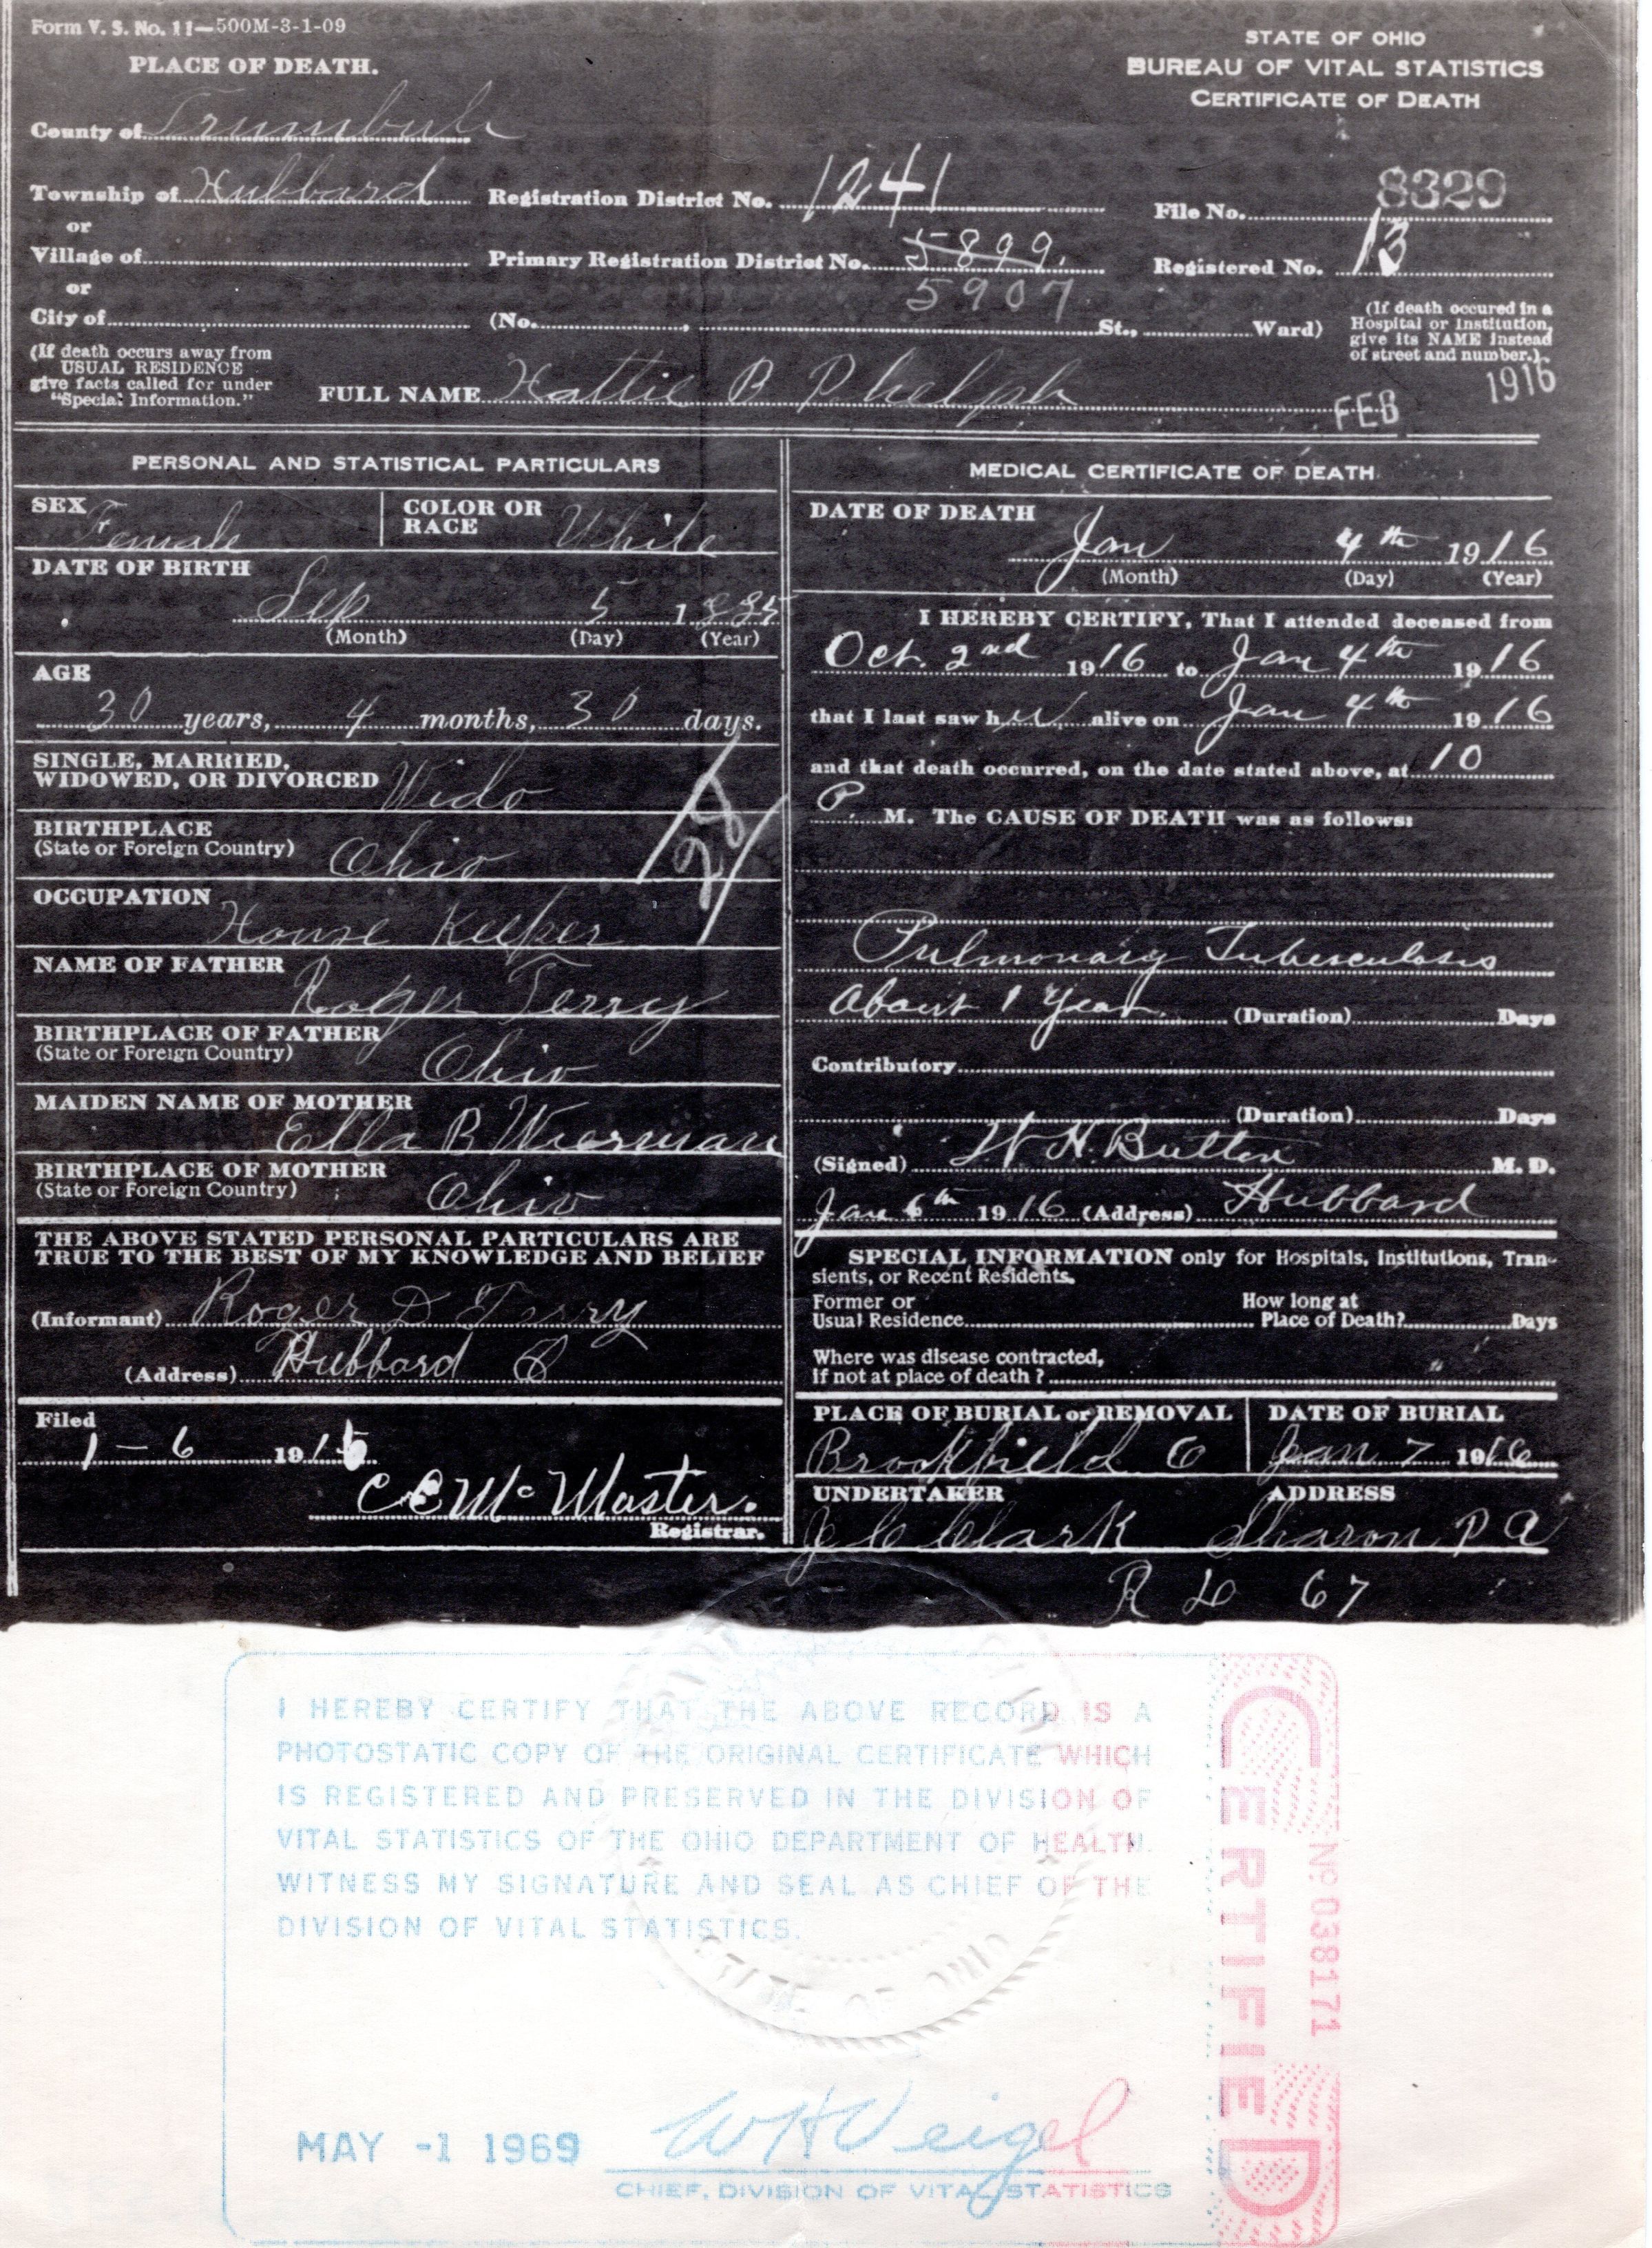 Form V. S. No. 11—500M-3-1-09
PLACE OF DEATH.
STATE OF OHIO
BUREAU OF VITAL STATISTICS
CERTIFICATE OF DEATH
County of Trumbull
Township of Hubbard
or
Village of
or
City of
Registration District No. 1241
Primary Registration District No. 5899.
5907
(No. , St., Ward)
File No. 8329
Registered No. 13
(If death occured in a
Hospital or Institution,
give its NAME instead
of street and number.)
(If death occurs away from
USUAL RESIDENCE
give facts called for under
"Special Information."
FULL NAME Hattie B Phelps
FEB 1916
PERSONAL AND STATISTICAL PARTICULARS
SEX Female
COLOR OR
RACE White
DATE OF BIRTH
Sep 5 1885
(Month) (Day) (Year)
AGE
30 years, 4 months, 30 days.
SINGLE, MARRIED,
WIDOWED, OR DIVORCED Wido
BIRTHPLACE
(State or Foreign Country) Ohio
28
OCCUPATION
House Keeper
NAME OF FATHER
Roger Terry
BIRTHPLACE OF FATHER
(State or Foreign Country) Ohio
MAIDEN NAME OF MOTHER
Ella B Wierman
BIRTHPLACE OF MOTHER
(State or Foreign Country) Ohio
THE ABOVE STATED PERSONAL PARTICULARS ARE
TRUE TO THE BEST OF MY KNOWLEDGE AND BELIEF
(Informant) Roger D Terry
(Address) Hubbard O
Filed
1 - 6 1916
C E McMaster.
Registrar.
MEDICAL CERTIFICATE OF DEATH
DATE OF DEATH
Jan 4th 1916
(Month) (Day) (Year)
I HEREBY CERTIFY, That I attended deceased from
Oct. 2nd 1916 to Jan 4th 1916
that I last saw her alive on Jan 4th 1916
and that death occurred, on the date stated above, at 10
P M. The CAUSE OF DEATH was as follows:
Pulmonary Tuberculosis
About 1 Year. (Duration) Days
Contributory
(Duration) Days
(Signed) W H. Button M. D.
Jan 6th 1916 (Address) Hubbard
SPECIAL INFORMATION only for Hospitals, Institutions, Tran-
sients, or Recent Residents.
Former or
Usual Residence
How long at
Place of Death? Days
Where was disease contracted,
If not at place of death ?
PLACE OF BURIAL or REMOVAL
Brookfield O
DATE OF BURIAL
Jan 7 1916
UNDERTAKER ADDRESS
J C Clark Sharon PA
67
I HEREBY CERTIFY THAT THE ABOVE RECORD IS A
PHOTOSTATIC COPY OF THE ORIGINAL CERTIFICATE WHICH
IS REGISTERED AND PRESERVED IN THE DIVISION OF
VITAL STATISTICS OF THE OHIO DEPARTMENT OF HEALTH.
WITNESS MY SIGNATURE AND SEAL AS CHIEF OF THE
DIVISION OF VITAL STATISTICS.
STATE OF OHIO
MAY -1 1969
W H Veigel
CHIEF, DIVISION OF VITAL STATISTICS
CERTIFIED
Nº 038171